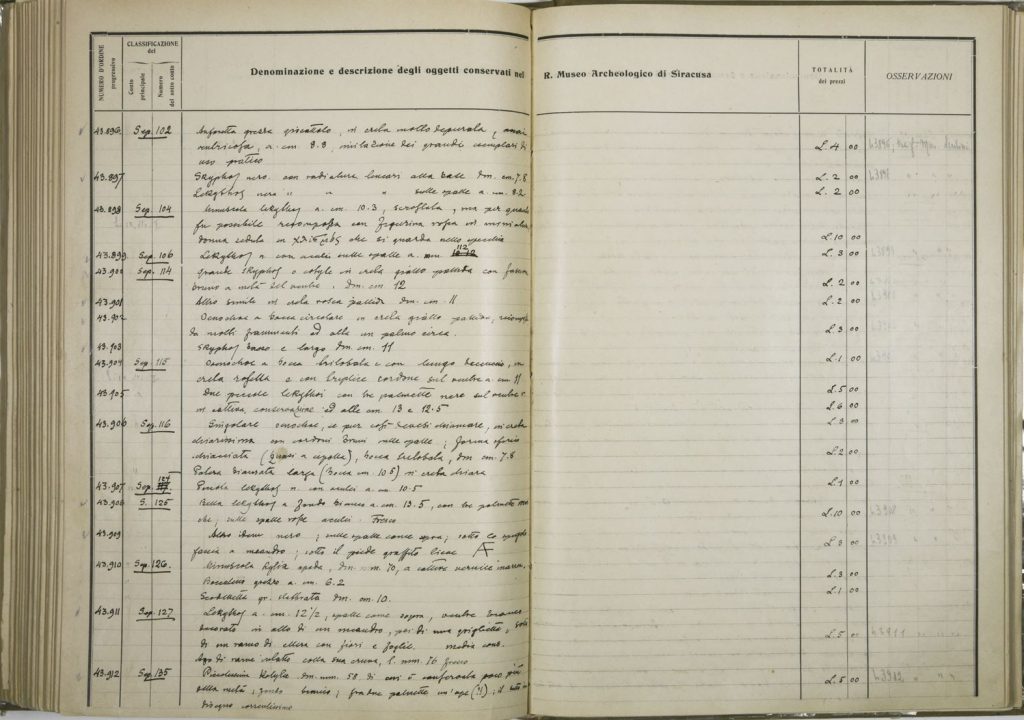 NUMERO D'ORDINE progressivo
CLASSIFICAZIONE del
Conto principale
Numero del sotto conto
Denominazione e descrizione degli oggetti conservati nel R. Museo Archeologico di Siracusa
TOTALITÀ dei prezzi
OSSERVAZIONI
43.896 Sep. 102 in creta molto depurata,
ventricosa, a. cm. 8.8, imitazione dei grandi esemplari di L. 4 00
uso pratico
43.897 Skyphos nero con radiature lineari alla base dm. cm. 7.8 L. 2 00
Lekythos nero " " " sulle spalle a. cm. 8.2 L. 2 00
43.898 Sep. 104 Minuscola lekythos a. cm. 10.3, scrostata, ma per quanto
fu possibile ricomposta con figurina rossa di
donna seduta in che si guarda nello specchio L. 10 00
43.899 Sep. 106 Lekythos n. con aculei sulle spalle a. mm 112 L. 3 00
43.900 Sep. 114 Grande skyphos o kotyle in creta giallo pallida con fascia
bruno a metà del ventre. dm. cm. 12 L. 2 00
43.901 Altro simile in creta rosea pallida dm. cm. 11 L. 2 00
43.902 Oenochoe a bocca circolare in creta giallo pallida,
da molti frammenti ed alta un palmo circa. L. 3 00
43.903 Skyphos basso e largo dm. cm. 11
43.904 Sep. 115 Oenochoe a bocca trilobata e con lungo beccuccio, in L. 1 00
creta rosetta e con triplice cordone sul ventre a. cm. 11
43.905 Due piccole lekythoi con tre palmette nere sul ventre L. 5 00
in cattiva conservazione ed alte cm. 13 e 12.5 L. 6 00
43.906 Sep. 116 Singolare oenochoe, se pur così devesi chiamare, in creta L. 3 00
chiarissima con cordoni bruni sulle spalle; forma
schiacciata (quasi a cipolla), bocca trilobata, dm. cm. 7.8 L. 2 00
Patera biansata larga (bocca cm. 10.5) in creta chiara
43.907 Sep. 124 Piccola lekythos n. con aculei a. cm. 10.5 L. 1 00
43.908 S. 125 Bella lekythos a fondo bianco a. cm. 13.5, con tre palmette
che; sulle spalle aculei. Fresco L. 10 00
43.909 Altro idem nero; sulle spalle come sopra; sotto lo
fascia a meandro; sotto il piede graffito L. 8 00
43.910 Sep. 126 Minuscola kylix apoda, dm. mm. 70, a cattiva vernice
Boccalino grezzo a. cm. 6.2 L. 3 00
Scodelletta gr. slabbrata dm. cm. 10. L. 1 00
43.911 Sep. 127 Lekythos a. cm. 12 1/2, spalle come sopra, ventre bianco
decorato in alto di un meandro, poi di una
di un ramo di ellera con fiori e foglie. media cons. L. 5 00
Ago di rame colla sua cruna, l. mm. 76
43.912 Sep. 135 Piccolissima kotyle dm. mm. 58 di cui è conservata poco più
della metà; fondo bianco; fra due palmette un'ape (?); il tutto L. 5 00
disegno correttissimo